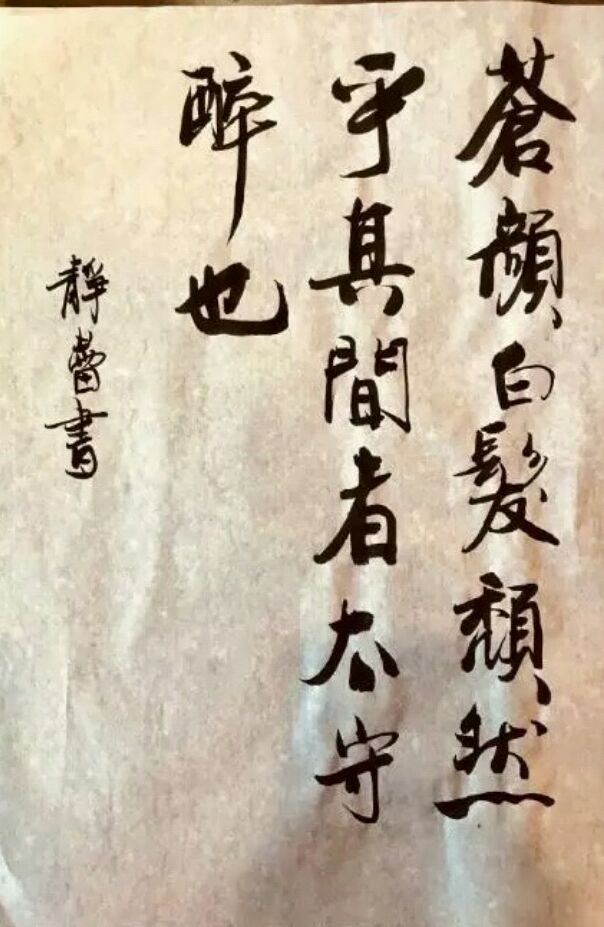 蒼顏白髮頹然
乎其間者太守
醉也
靜蕾書